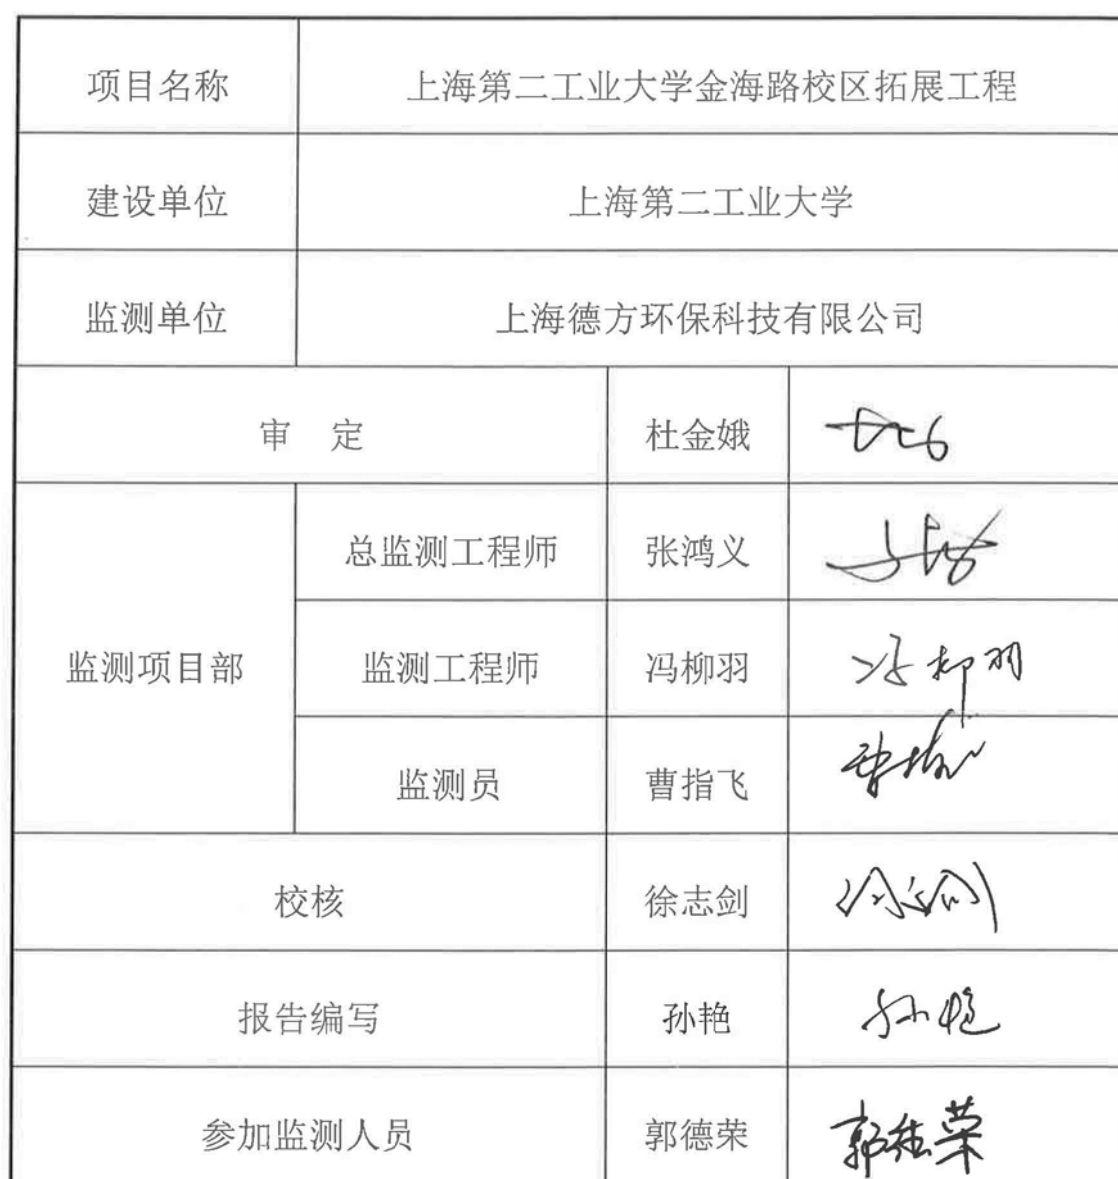 项目名称 上海第二工业大学金海路校区拓展工程
建设单位 上海第二工业大学
监测单位 上海德方环保科技有限公司
审 定 杜金娥
总监测工程师 张鸿义
监测项目部 监测工程师 冯柳羽 冯柳羽
监测员 曹指飞
校核 徐志剑
报告编写 孙艳 孙艳
参加监测人员 郭德荣 郭德荣